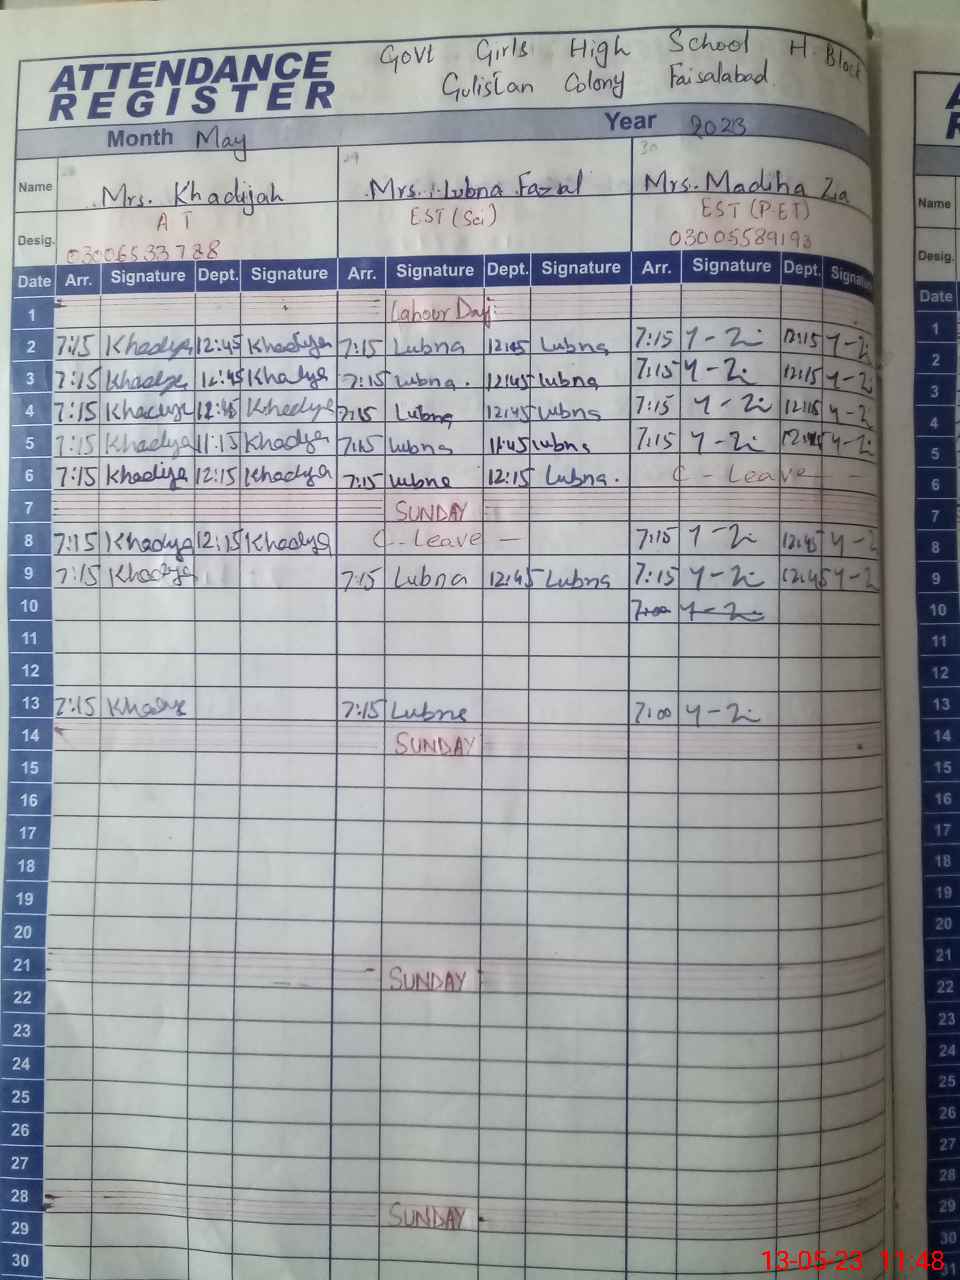 ATTENDANCE REGISTER
Govt Girls High School H-Block
Gulistan Colony Faisalabad.
Month May Year 2023
28 29 30
Name Mrs. Khadijah Mrs. Lubna Fazal Mrs. Madiha Zia
Desig. A T EST (Sci) EST (P.ET)
03006533788 03005589193
Date Arr. Signature Dept. Signature Arr. Signature Dept. Signature Arr. Signature Dept. Signature
1 Labour Day
2 7:15 Khadya 12:45 Khadiya 7:15 Lubna 12:45 Lubna 7:15 12:15
3 7:15 12:45 7:15 Lubna. 12:45 Lubna 7:15 12:15
4 7:15 12:45 7:15 Lubna 12:45 Lubna 7:15 12:15
5 7:15 Khadya 11:15 Khadya 7:15 Lubna 11:45 Lubna 7:15
6 7:15 Khadiya 12:15 Khadiya 7:15 Lubna 12:15 Lubna. C - Leave -
7 SUNDAY
8 7:15 Khadya 12:15 Khadya C - Leave - 7:15 12:45
9 7:15 Khadiya 7:15 Lubna 12:45 Lubna 7:15 12:45
10 7:00
11
12
13 7:15 7:15 Lubna 7:00
14 SUNDAY
15
16
17
18
19
20
21 SUNDAY
22
23
24
25
26
27
28 SUNDAY
29
30
Name
Desig.
Date
1
2
3
4
5
6
7
8
9
10
11
12
13
14
15
16
17
18
19
20
21
22
23
24
25
26
27
28
29
30
31
13-05-23 11:48